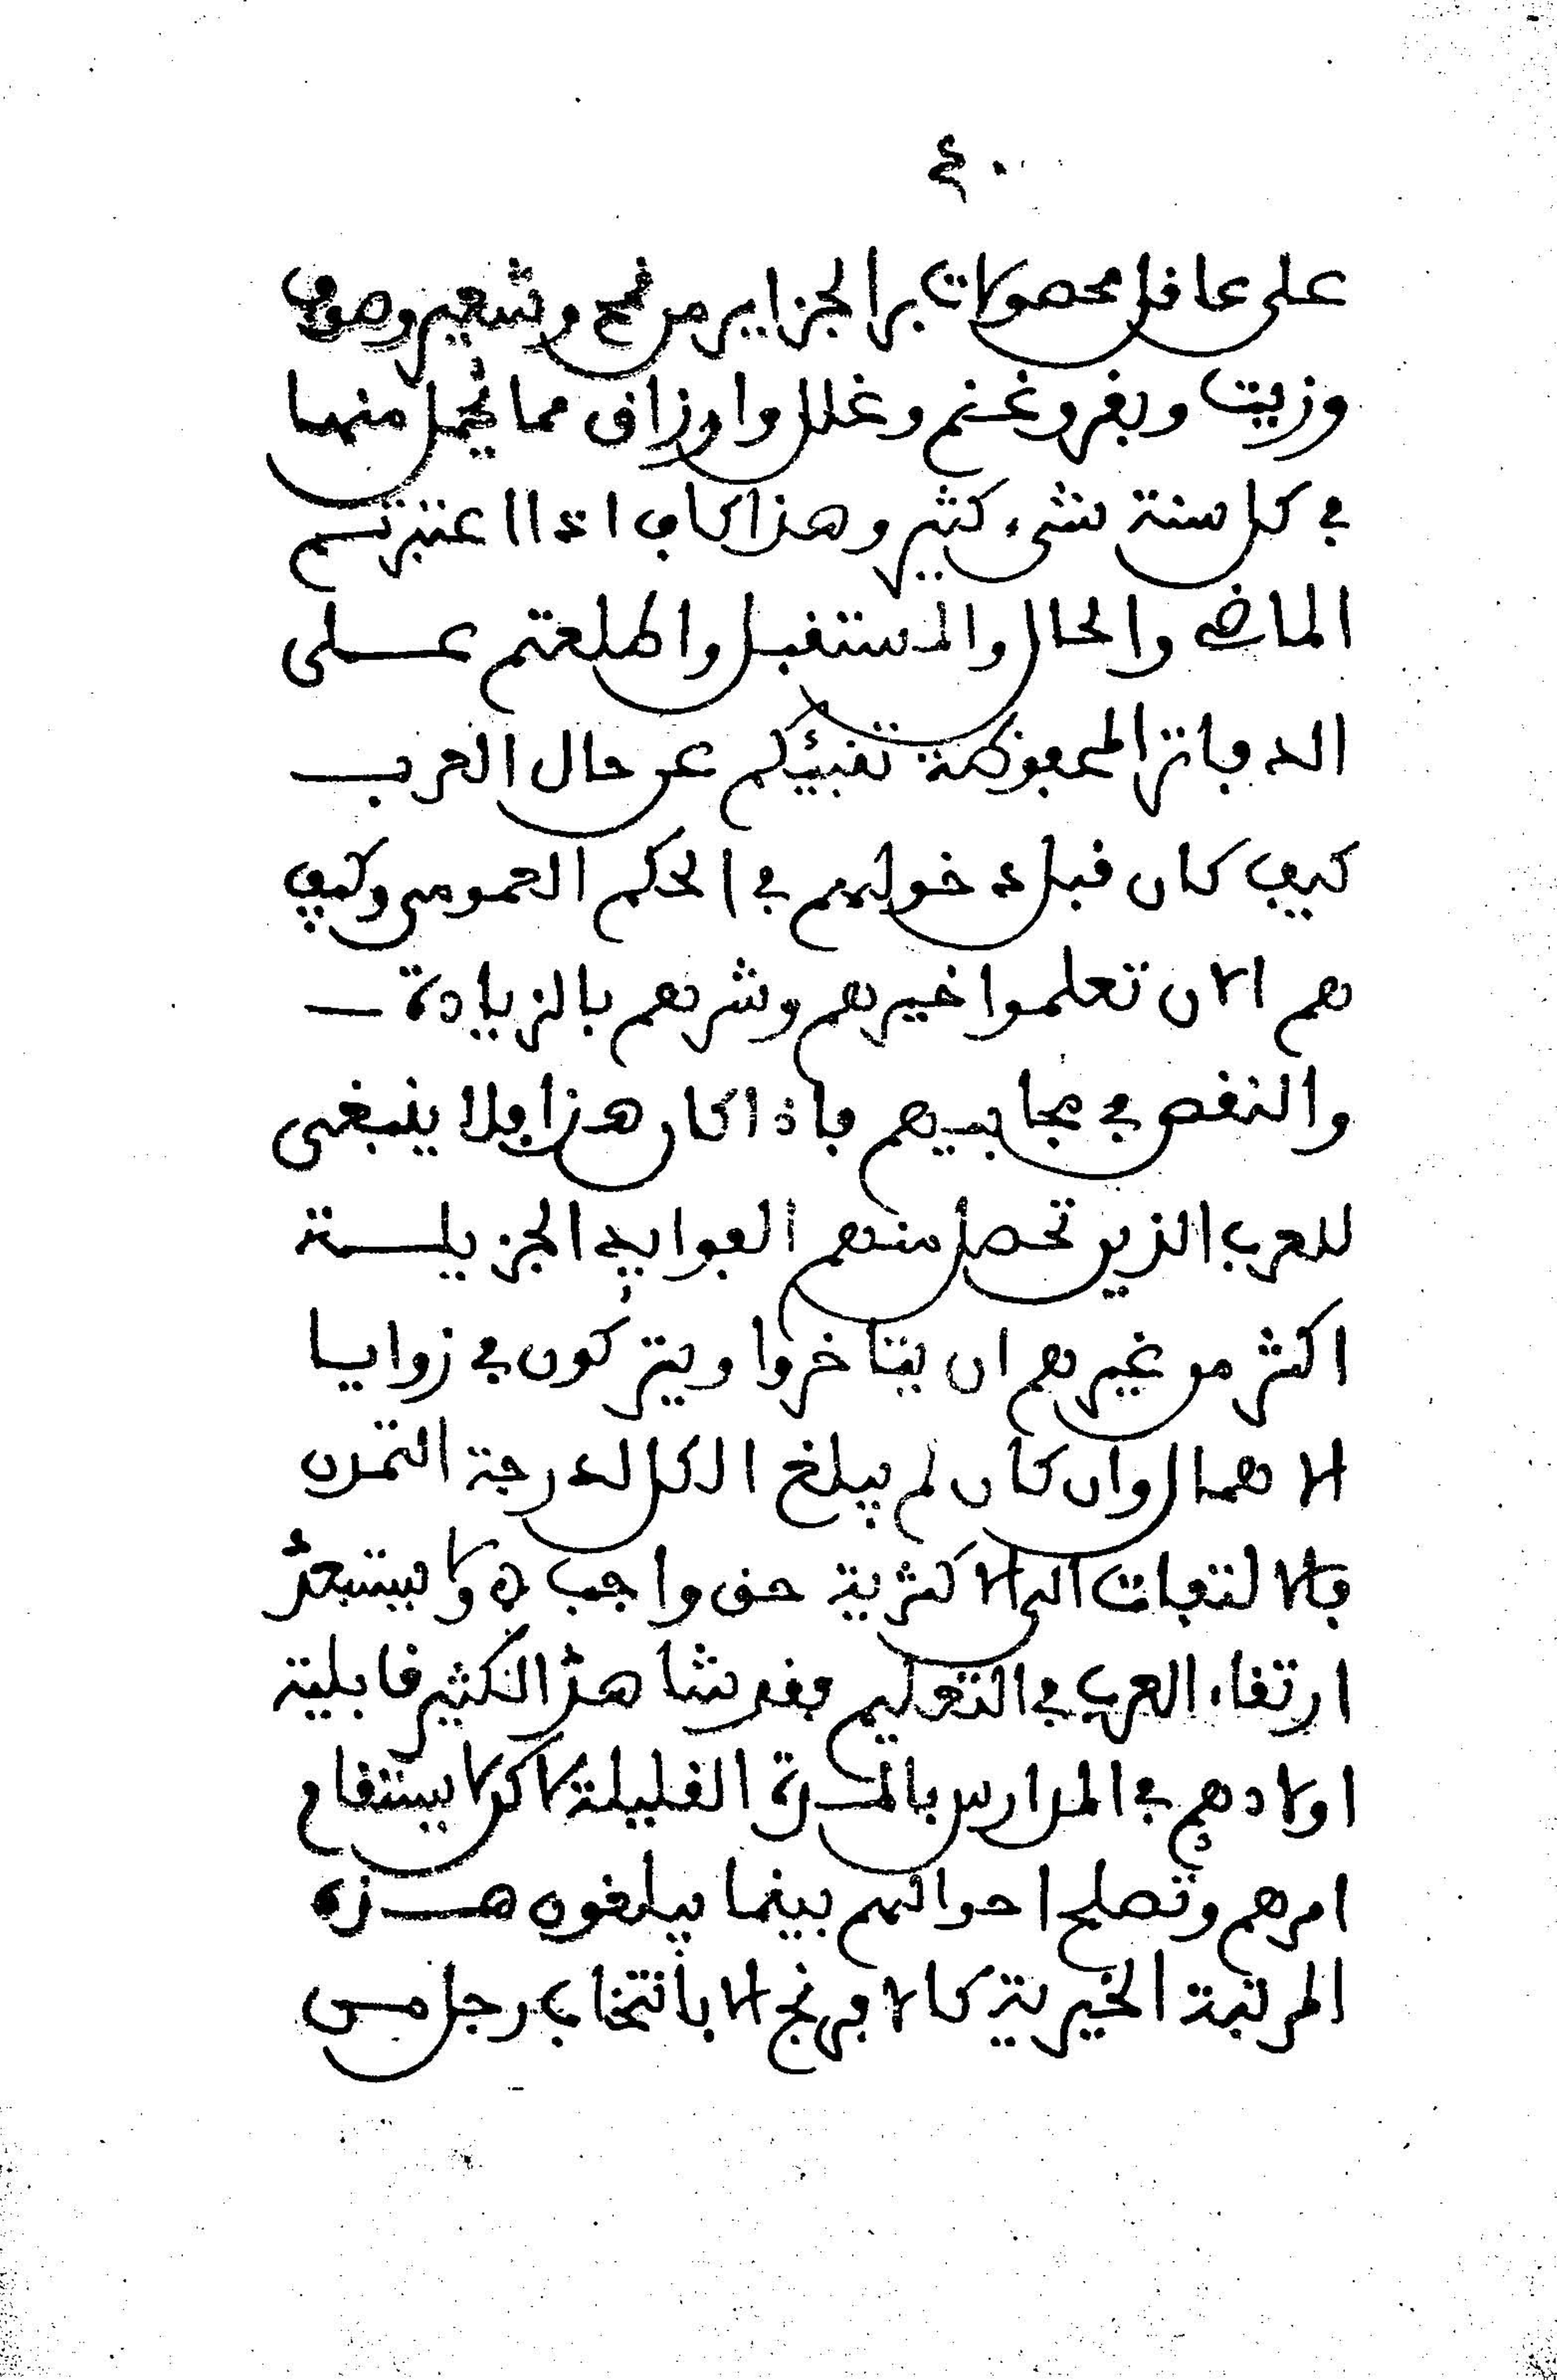 ٤٠
على عاقل محصولات بر الجزاير من قمح وشعير وصوف
وزيت وبقر وغنم وغلل وارزاق مما يحمل منها
في كل سنة شيء كثير وهذا كاف اذا اعتبرتم
الماضي والحال والمستقبل واطلعتم على
الدفاتر المحفوظة تنبيئكم عن حال العرب
كيف كان قبل دخولهم في الحكم العمومي وكيف
هم الان تعلموا خيرهم وشرهم بالزيادة
والنقص في مجابيهم فاذا كان هذا فلا ينبغي
للعرب الذين تحصل منهم الفوايد الجزيلة
اكثر من غيرهم ان يتاخروا ويتركون في زوايا
الاهمال وان كان لم يبلغ الكل لدرجة التمدن
فالالتفات الى الاكثرية حق واجب ولا يستبعد
ارتقاء العرب في التعليم فقد شاهد الكثير قابلية
اولادهم في المدارس بالمدة القليلة لاكن لا يستقام
امرهم وتصلح احوالهم بينما يبلغون هذه
المرتبة الخيرية كالافرنج الا بانتخاب رجل من